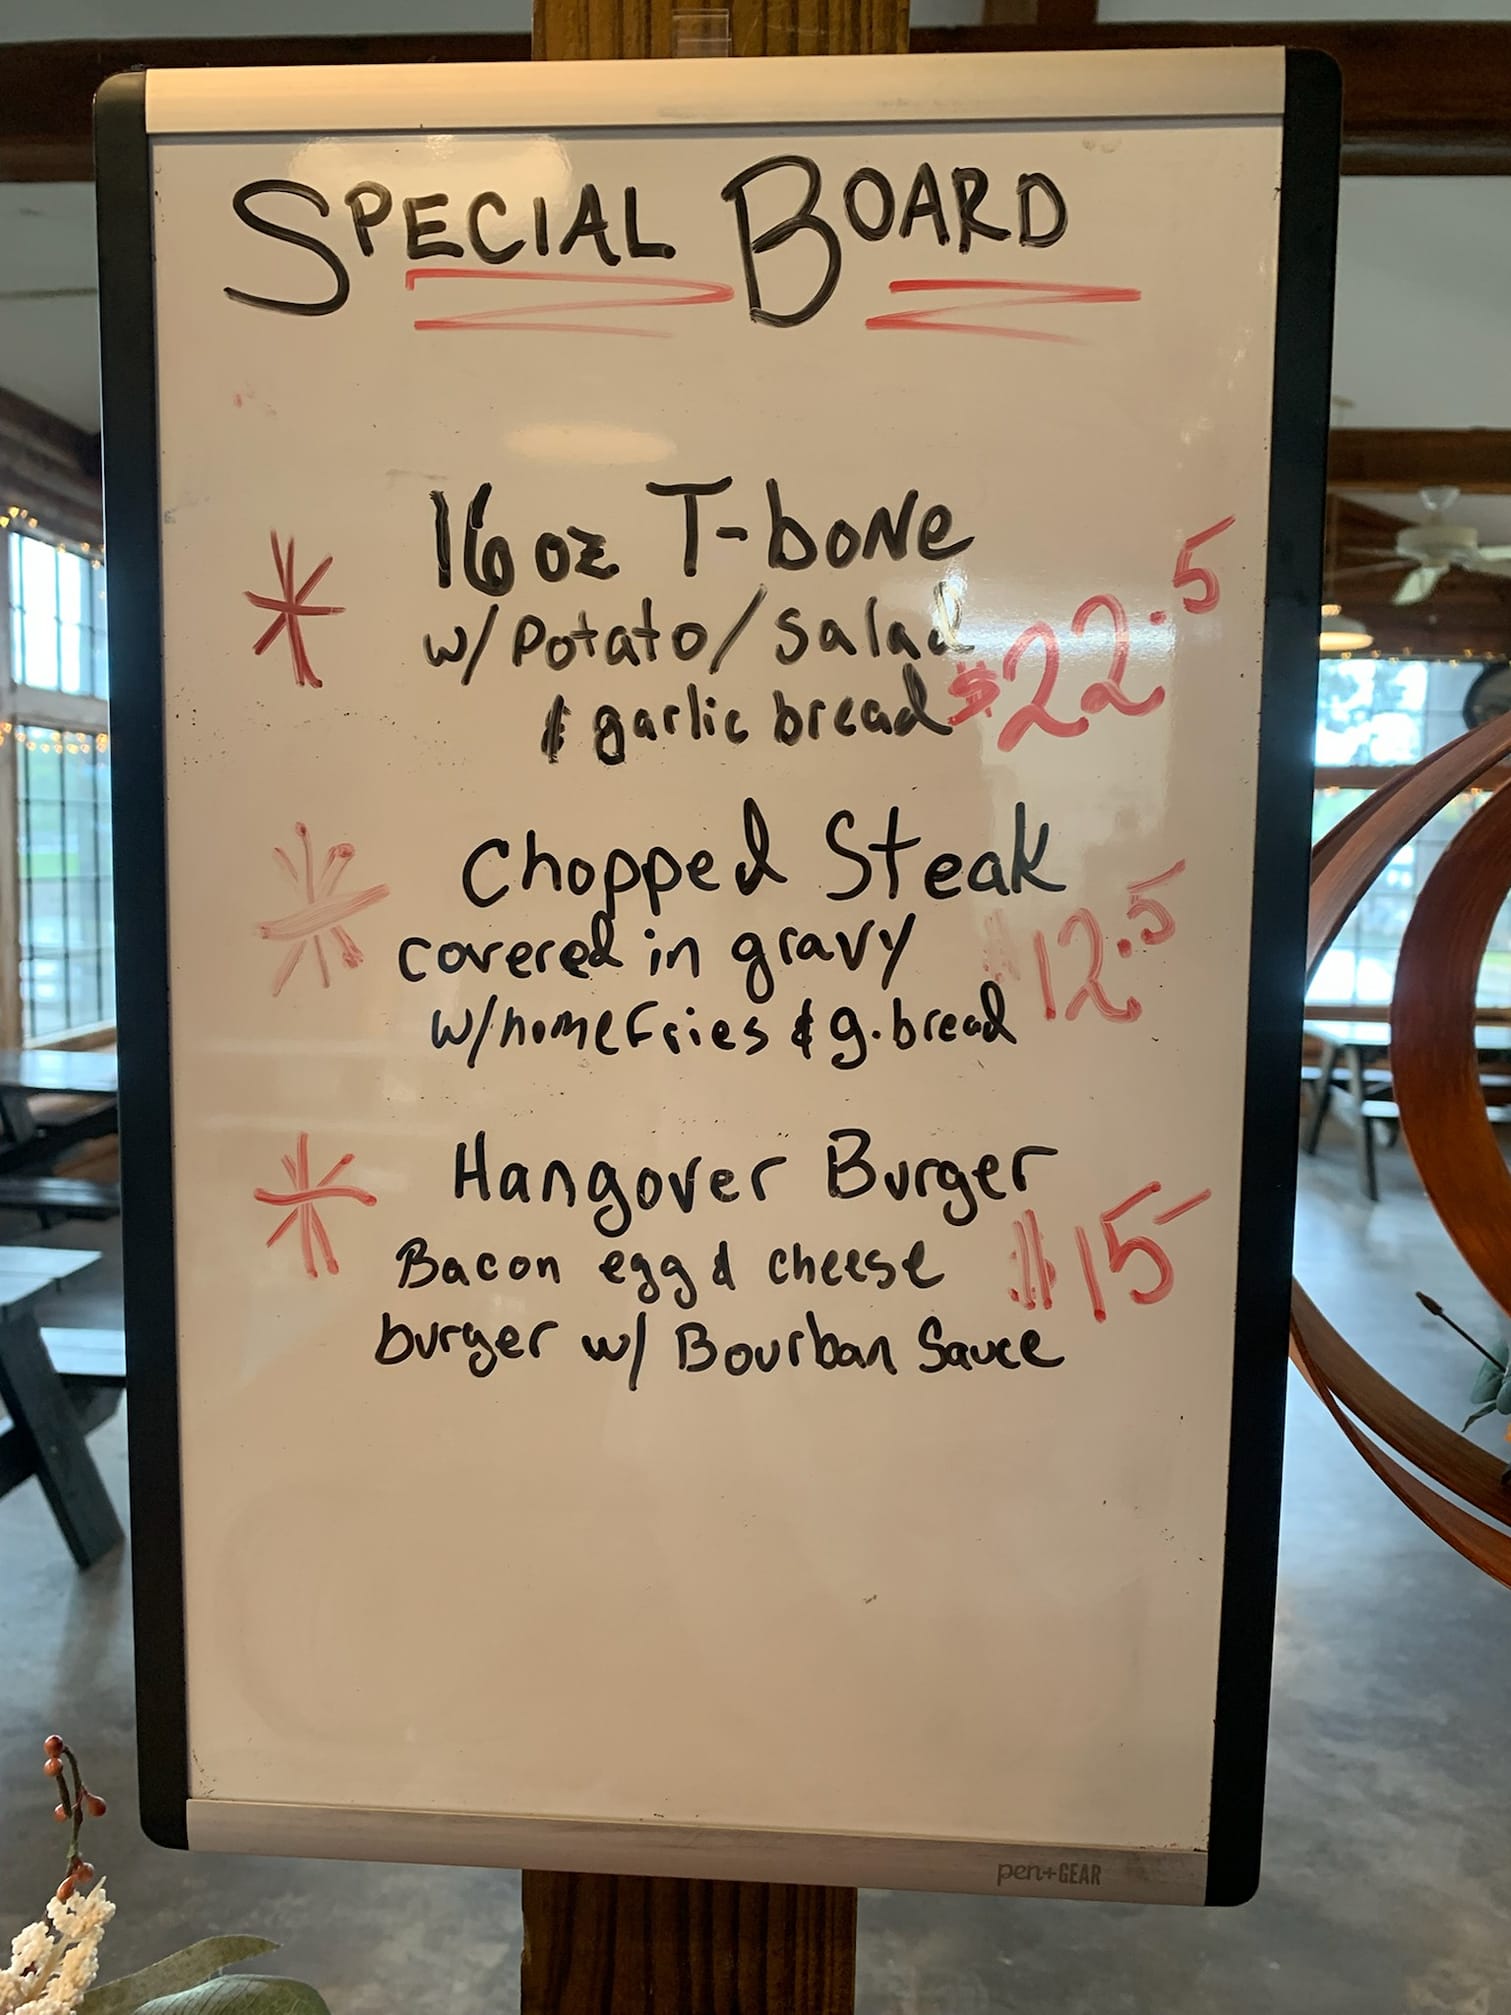 SPECIAL BOARD
16 oz T-bone
w/ Potato / salad
& garlic bread $22.5
Chopped Steak
covered in gravy $12.5
w/ homefries & g. bread
Hangover Burger
Bacon egg & cheese $15-
burger w/ Bourban Sauce
pen+GEAR